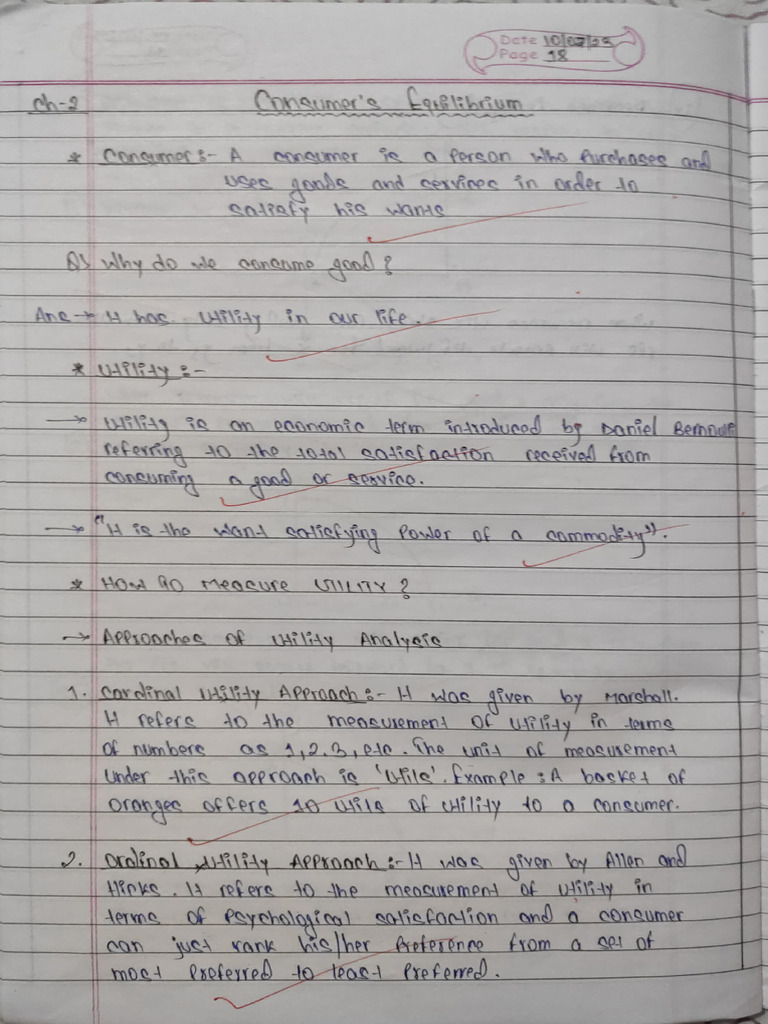 Date 10/07/23
Page 18
Ch-2 Consumer's Equilibrium
* Consumer :- A consumer is a person who purchases and
uses goods and services in order to
satisfy his wants
Q) Why do we consume good?
Ans → It has utility in our life.
* Utility :-
→ Utility is an economic term introduced by Daniel
referring to the total satisfaction received from
consuming a good or service.
→ "It is the want satisfying power of a commodity".
* How do measure utility?
→ Approaches of Utility Analysis
1. Cardinal Utility Approach :- It was given by Marshall.
It refers to the measurement of utility in terms
of numbers as 1,2,3, etc. The unit of measurement
under this approach is 'utils'. Example : A basket of
oranges offers 10 utils of utility to a consumer.
2. Ordinal Utility Approach :- It was given by Allen and
Hicks. It refers to the measurement of utility in
terms of psychological satisfaction and a consumer
can just rank his/her preference from a set of
most preferred to least preferred.